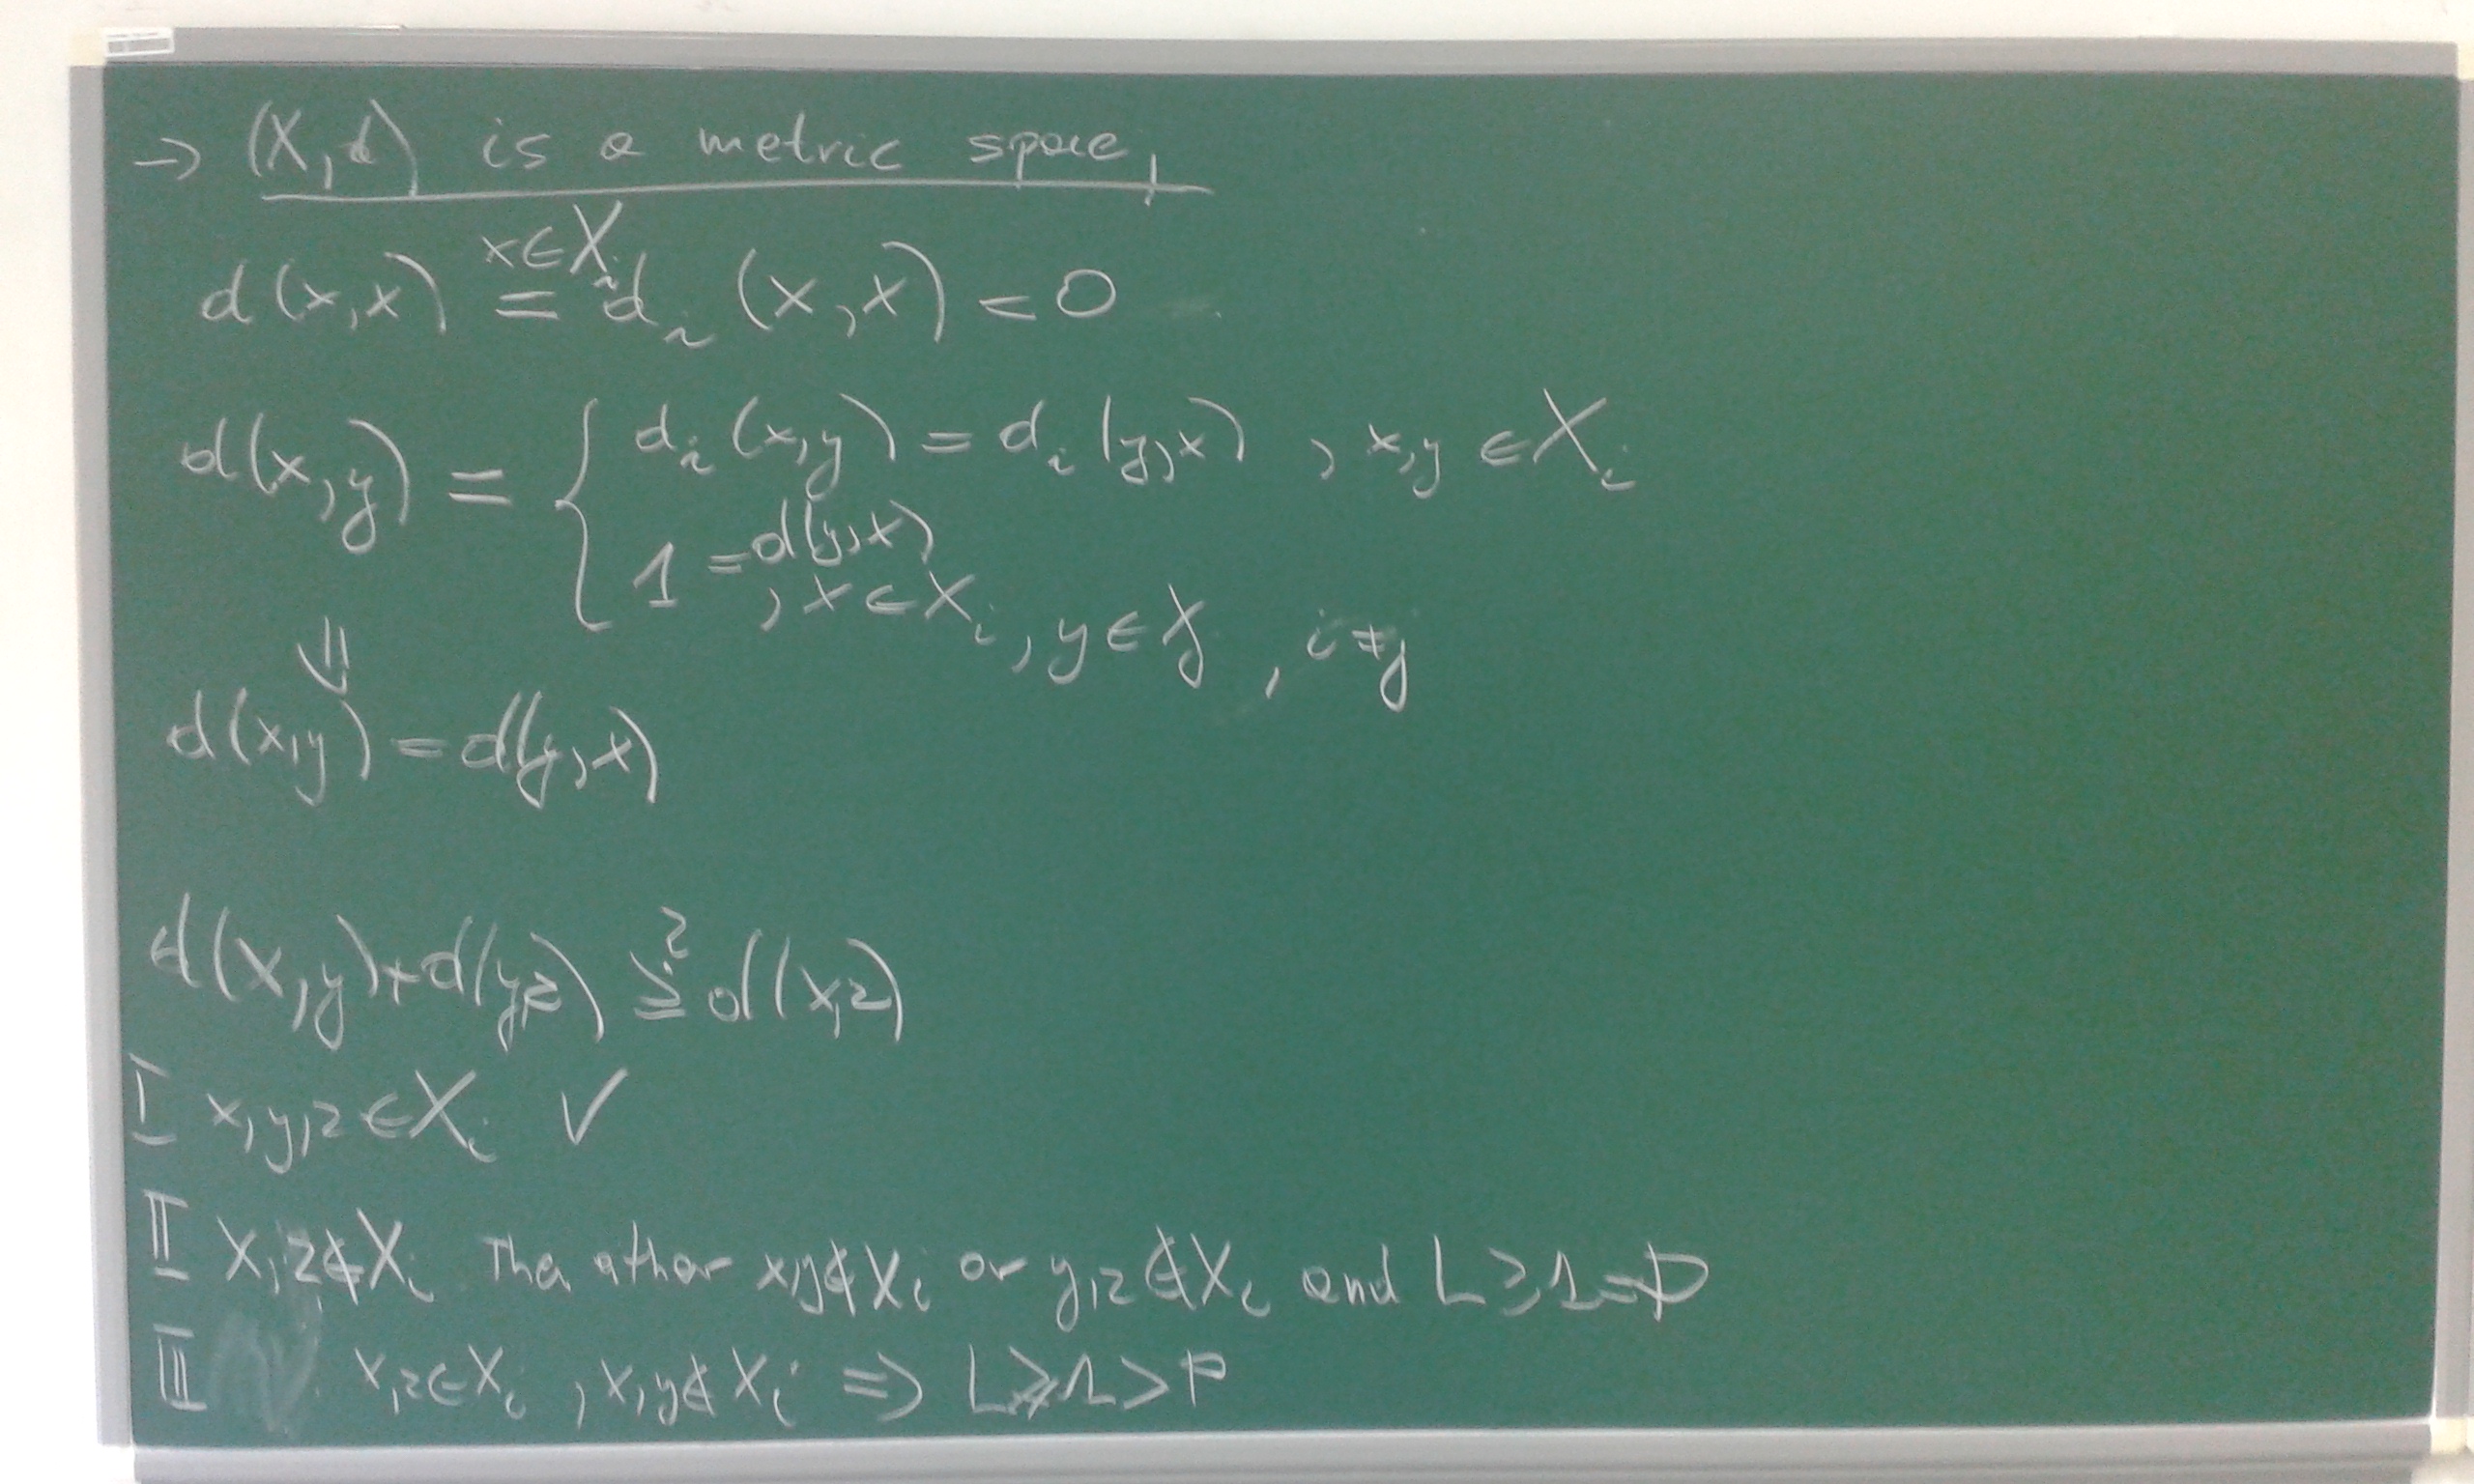 → (X,d) is a metric space,
d(x,x) x∈X_i = d_i (x,x) = 0
d(x,y) = { d_i (x,y) = d_i (y,x) , x,y ∈ X_i
1 = d(y,x)
, x ∈ X_i , y ∈ X_j , i ≠ j
⇓
d(x,y) = d(y,x)
d(x,y)+d(y,z) ≥? d(x,z)
I x,y,z ∈ X_i ✓
II x,z ∉ X_i The other x,y ∉ X_i or y,z ∉ X_i and L ≥ 1 = D
III x,z ∈ X_i , x,y ∉ X_i ⇒ L ≥ 1 > P